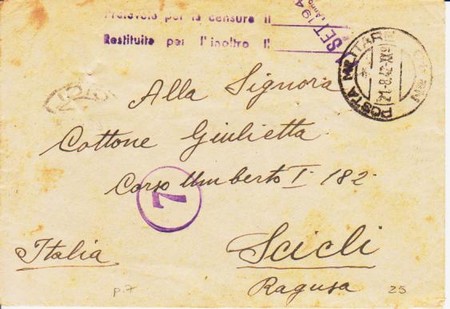 Prelevato per la censura il
Restituito per l'inoltro il
SET 194
POSTA MILITARE
21-8-42-XX
Alla Signora
Cottone Giulietta
Corso Umberto I- 182-
7
Italia
Scicli
Ragusa
p.7
25